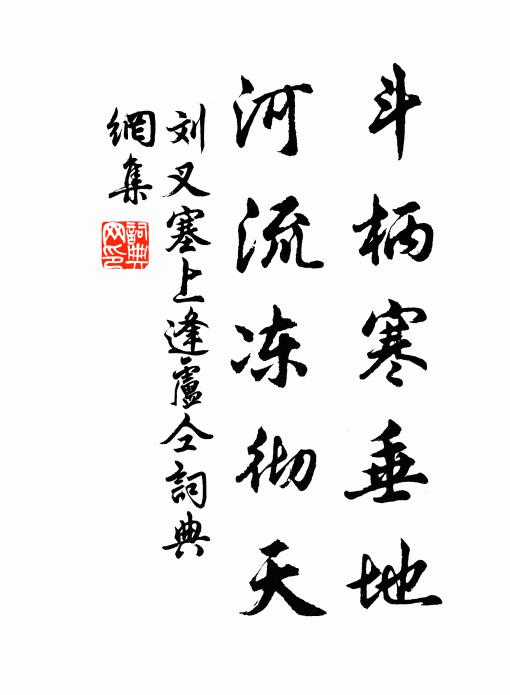 斗柄寒垂地
河流冻彻天
刘叉塞上逢盧仝詞典
網集
詞典
网印